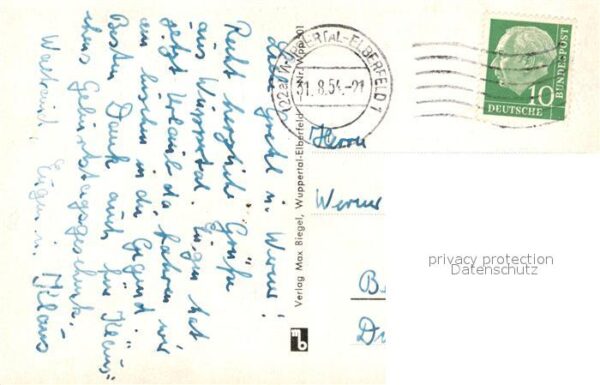 Liebe Gretel u. Werner!
Recht herzliche Grüße
aus Wuppertal. Eugen hat
jetzt Urlaub da fahren wir
ein bischen in die Gegend.
Besten Dank auch für Klaus'
Geburtstagsgeschenk.
Eugen u. Klaus
Verlag Max Biegel, Wuppertal-Elberfeld
(22a) WUPPERTAL-ELBERFELD 1
31.8.54.-21
10
DEUTSCHE
BUNDESPOST
Herrn
Werner
privacy protection
Datenschutz